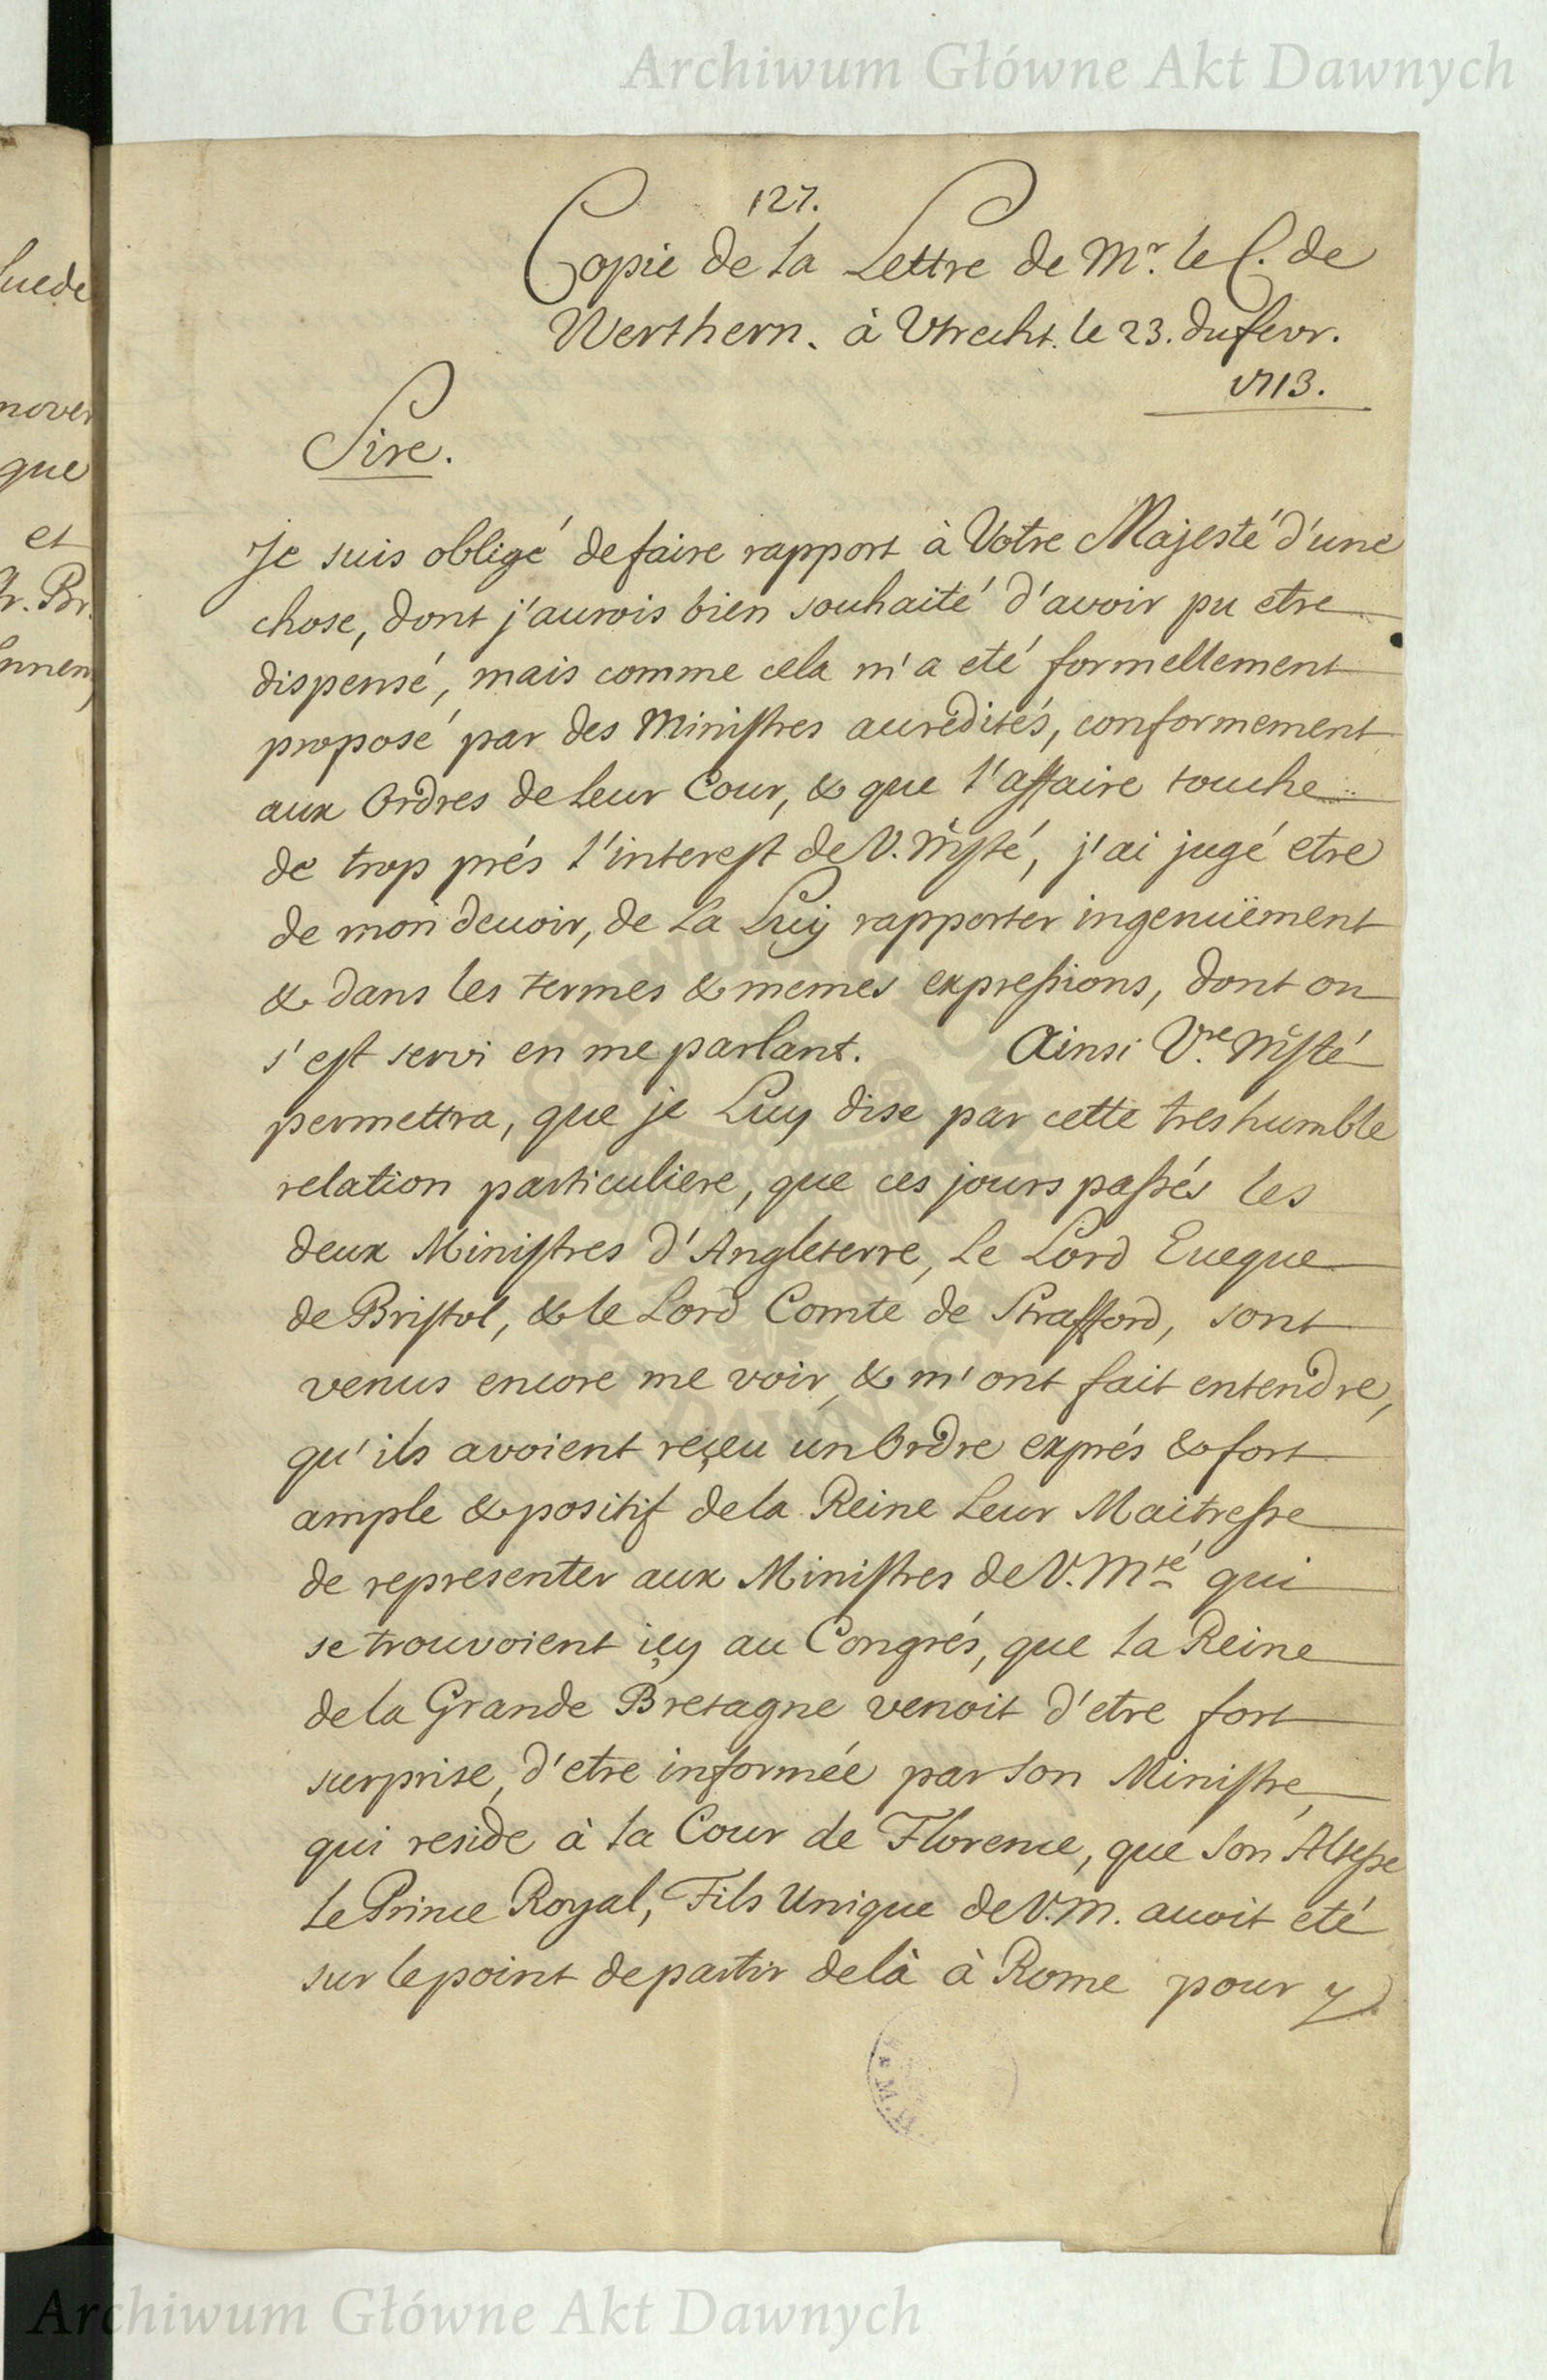 Archiwum Główne Akt Dawnych
127.
Copie de la Lettre de Mr. le C. de
Werthern. à Utrecht. le 23. du fevr.
1713.
Sire.
Je suis obligé de faire rapport à Votre Majesté d'une
chose, dont j'aurois bien souhaité d'avoir pu etre
dispensé, mais comme cela m'a eté formellement
proposé par des Ministres accredités, conformement
aux Ordres de Leur Cour, & que l'affaire touche
de trop prés l'interest de V. Mjsté, j'ai jugé etre
de mon devoir, de La Luy rapporter ingenuëment
& dans les termes & memes expressions, dont on
s'est servi en me parlant. Ainsi Vre. Mjsté
permettra, que je Luy dise par cette tres humble
relation particuliere, que ces jours passés les
deux Ministres d'Angleterre, Le Lord Eveque
de Bristol, & le Lord Comte de Strafford, sont
venus encore me voir, & m'ont fait entendre,
qu'ils avoient reçeu un Ordre exprés & fort
ample & positif de la Reine Leur Maitresse
de representer aux Ministres de V. Mté qui
se trouvoient içy au Congrés, que la Reine
de la Grande Bretagne venoit d'etre fort
surprise, d'etre informée par son Ministre,
qui reside à la Cour de Florence, que Son Altesse
Le Prince Royal, Fils Unique de V. M. avoit eté
sur le point de partir delà à Rome pour y
uede
nover
que
et
r. Br.
nnen
Archiwum Główne Akt Dawnych